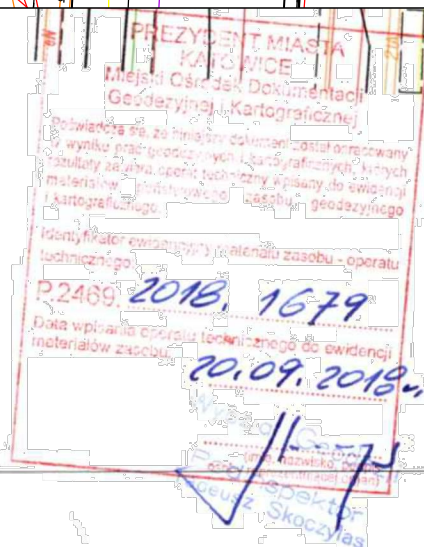 PREZYDENT MIASTA
KATOWICE
Miejski Ośrodek Dokumentacji
Geodezyjnej i Kartograficznej
Poświadcza się, że niniejszy dokument został opracowany
w wyniku prac geodezyjnych i kartograficznych, których
rezultaty zawiera operat techniczny wpisany do ewidencji
materiałów państwowego zasobu geodezyjnego
i kartograficznego.
Identyfikator ewidencyjny materiału zasobu - operatu
technicznego:
P.2469. 2018. 1679
Data wpisania operatu technicznego do ewidencji
materiałów zasobu:
20.09.2018 r.
Skoczylas